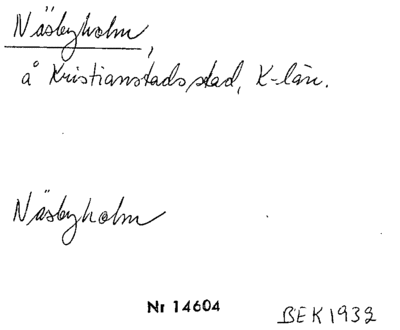 Näsbyholm,
å Kristianstads stad, K-län.
Näsbyholm
Nr 14604
BEK1932